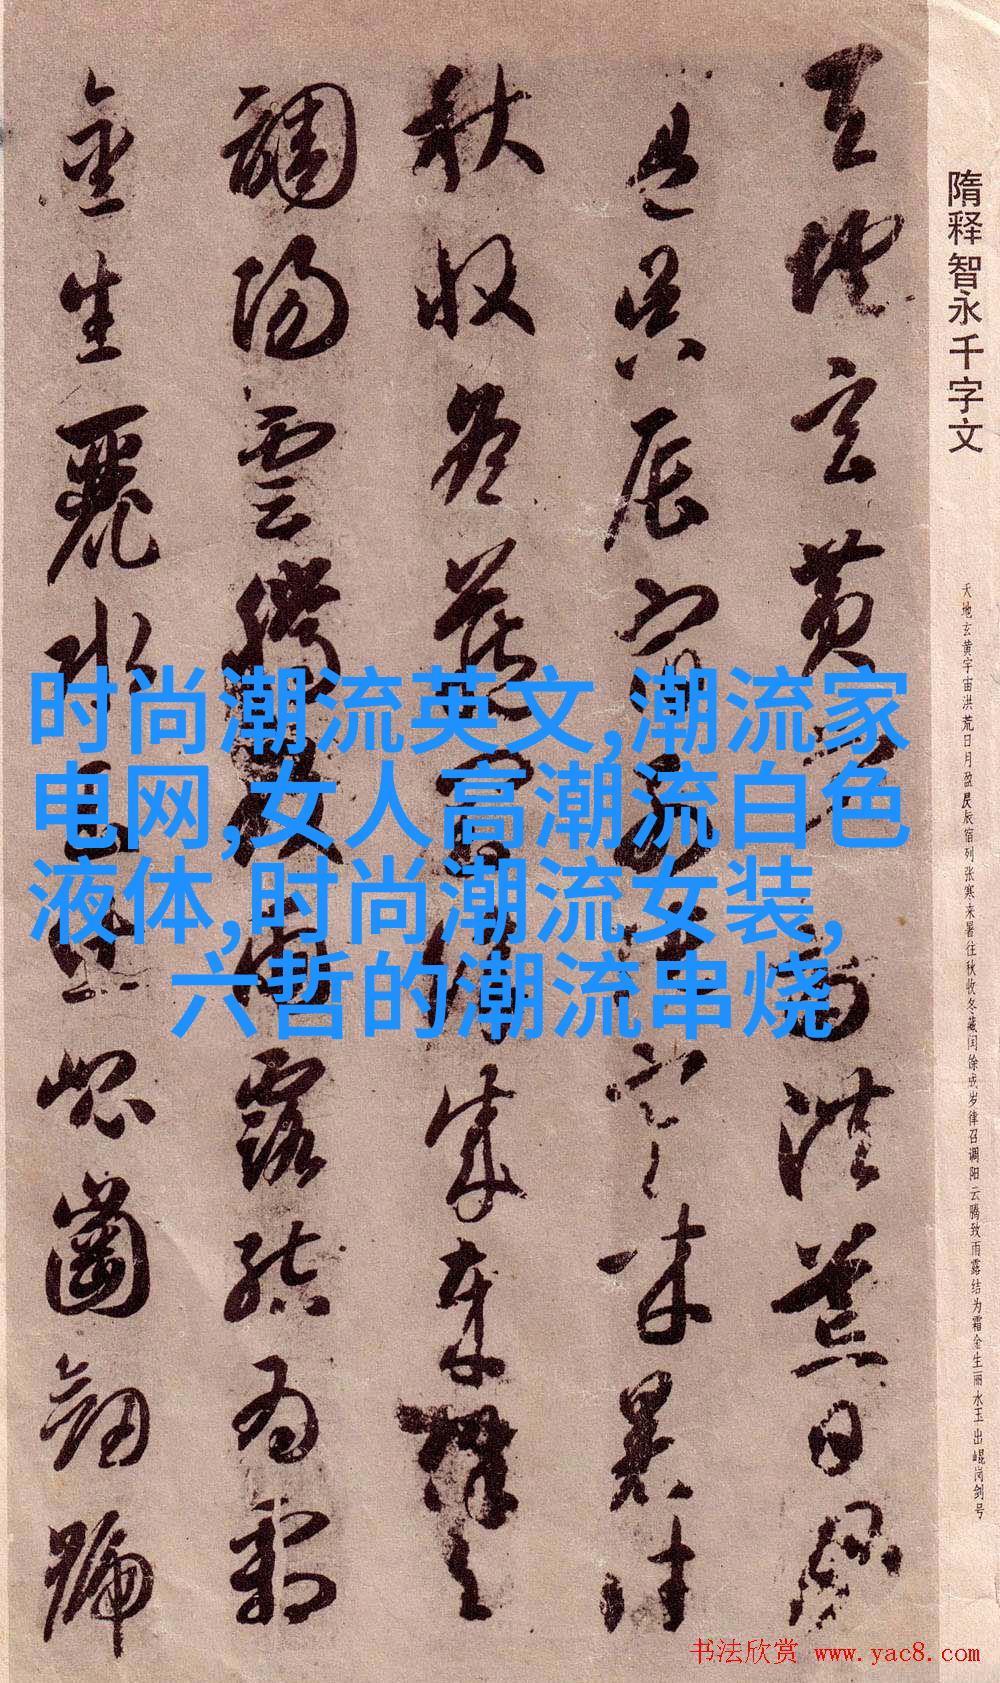 隋释智永千字文
天地玄黄宇宙洪荒日月盈昃辰宿列张寒来暑往秋收冬藏闰馀成岁律召调阳云腾致雨露结为霜金生丽水玉出崐岗剑号
天地玄黄宇宙洪荒日月
盈昃辰宿列張寒来暑往
秋收冬藏閏餘成歲律吕
調陽雲騰致雨露結為霜
金生麗水玉出崐崗劒號
时尚潮流英文,潮流家
电网,女人高潮流白色
液体,时尚潮流女装,
六哲的潮流串烧
书法欣赏 www.yac8.com